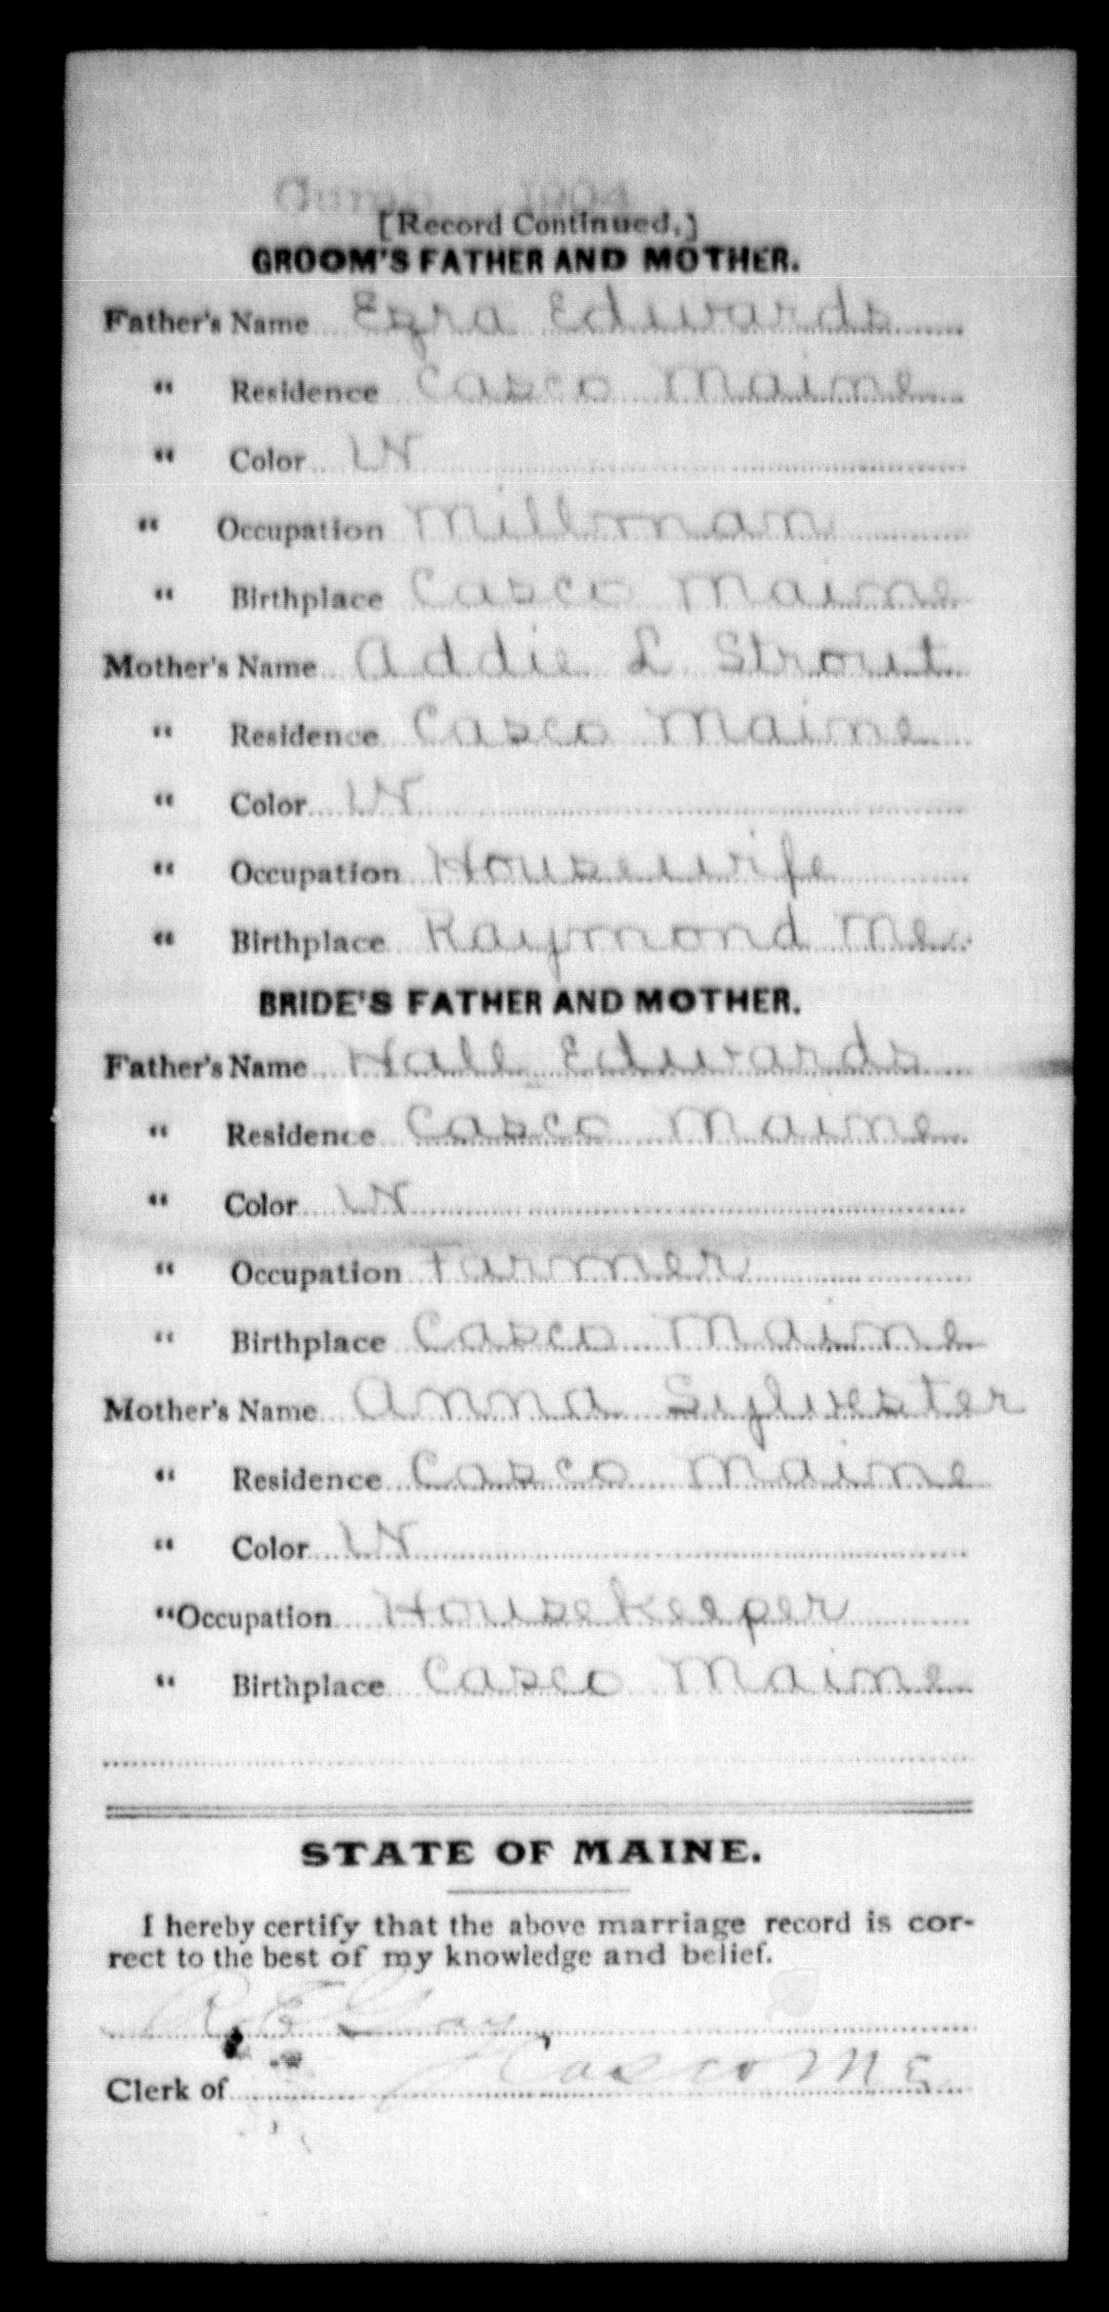 1904
[Record Continued.]
GROOM'S FATHER AND MOTHER.
Father's Name Ezra Edwards
" Residence Casco Maine
" Color W
" Occupation Millman
" Birthplace Casco Maine
Mother's Name Addie L Strout
" Residence Casco Maine
" Color W
" Occupation Housewife
" Birthplace Raymond Me.
BRIDE'S FATHER AND MOTHER.
Father's Name Hall Edwards
" Residence Casco Maine
" Color W
" Occupation Farmer
" Birthplace Casco Maine
Mother's Name Anna Sylvester
" Residence Casco Maine
" Color W
" Occupation Housekeeper
" Birthplace Casco Maine
STATE OF MAINE.
I hereby certify that the above marriage record is cor-
rect to the best of my knowledge and belief.
R. E. Gay,
Clerk of Casco Me